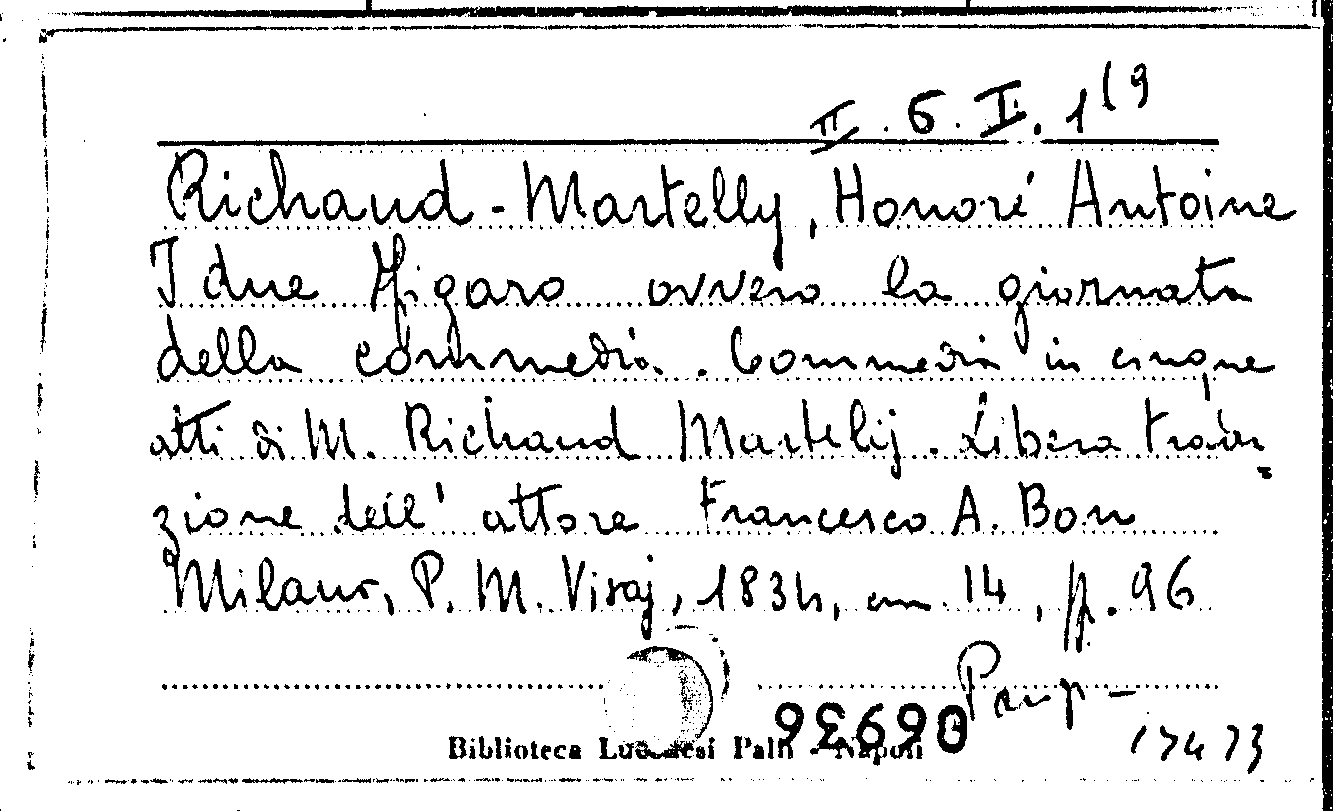 II. 6. I. 1(9
Richaud-Martelly, Honoré Antoine
I due Figaro ovvero la giornata
della commedia. Commedia in cinque
atti di M. Richaud Martelij. Libera tradu=
zione dell' attore Francesco A. Bon
Milano, P. M. Visaj, 1834, cm. 14, pp. 96
Biblioteca Lucchesi Palli - Napoli
069936
17473